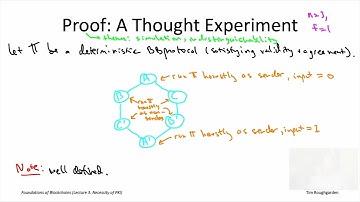 Proof: A Thought Experiment
n=3,
f=1
themes: simulation, indistinguishability
Let π be a deterministic BB protocol (satisfying validity + agreement).
A
run π honestly as sender, input = 0
B
C
run π
honestly
as non-
sender
C'
B'
A'
run π honestly as sender, input = 1
Note: well defined.
Foundations of Blockchains (Lecture 3: Necessity of PKI)
Tim Roughgarden